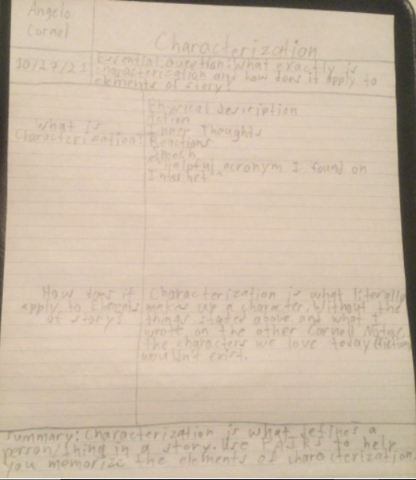 Angelo
Cornel
Characterization
10/27/21
Essential Question: What exactly is
characterization and how does it apply to
elements of story?
What is
Characterization?
Physical description
Action
Inner Thoughts
Reactions
Speech
helpful acronym I found on
Internet
How does it
apply to Elements
of story?
Characterization is what literally
makes up a character. Without the
things stated above and what I
wrote on the other Cornell Notes,
the characters we love today
wouldn't exist.
Summary: Characterization is what defines a
person/thing in a story. Use to help
you memorize the elements of characterization.